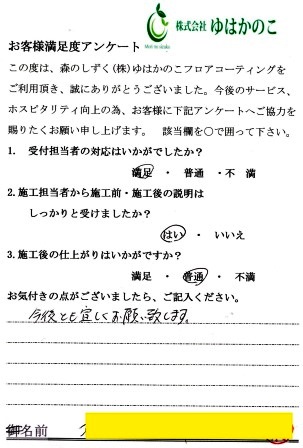 株式会社 ゆはかのこ
お客様満足度アンケート
この度は、森のしずく(株)ゆはかのこフロアコーティングを
ご利用頂き、誠にありがとうございました。今後のサービス、
ホスピタリティ向上の為、お客様に下記アンケートへご協力を
賜りたくお願い申し上げます。 該当欄を〇で囲って下さい。
1. 受付担当者の対応はいかがでしたか?
満足 ・ 普通 ・不 満
2.施工担当者から施工前・施工後の説明は
しっかりと受けましたか?
はい ・ いいえ
3.施工後の仕上がりはいかがですか?
満足 ・ 普通 ・ 不満
お気付きの点がございましたら、ご記入ください。
今後とも宜しくお願い致します。
御名前